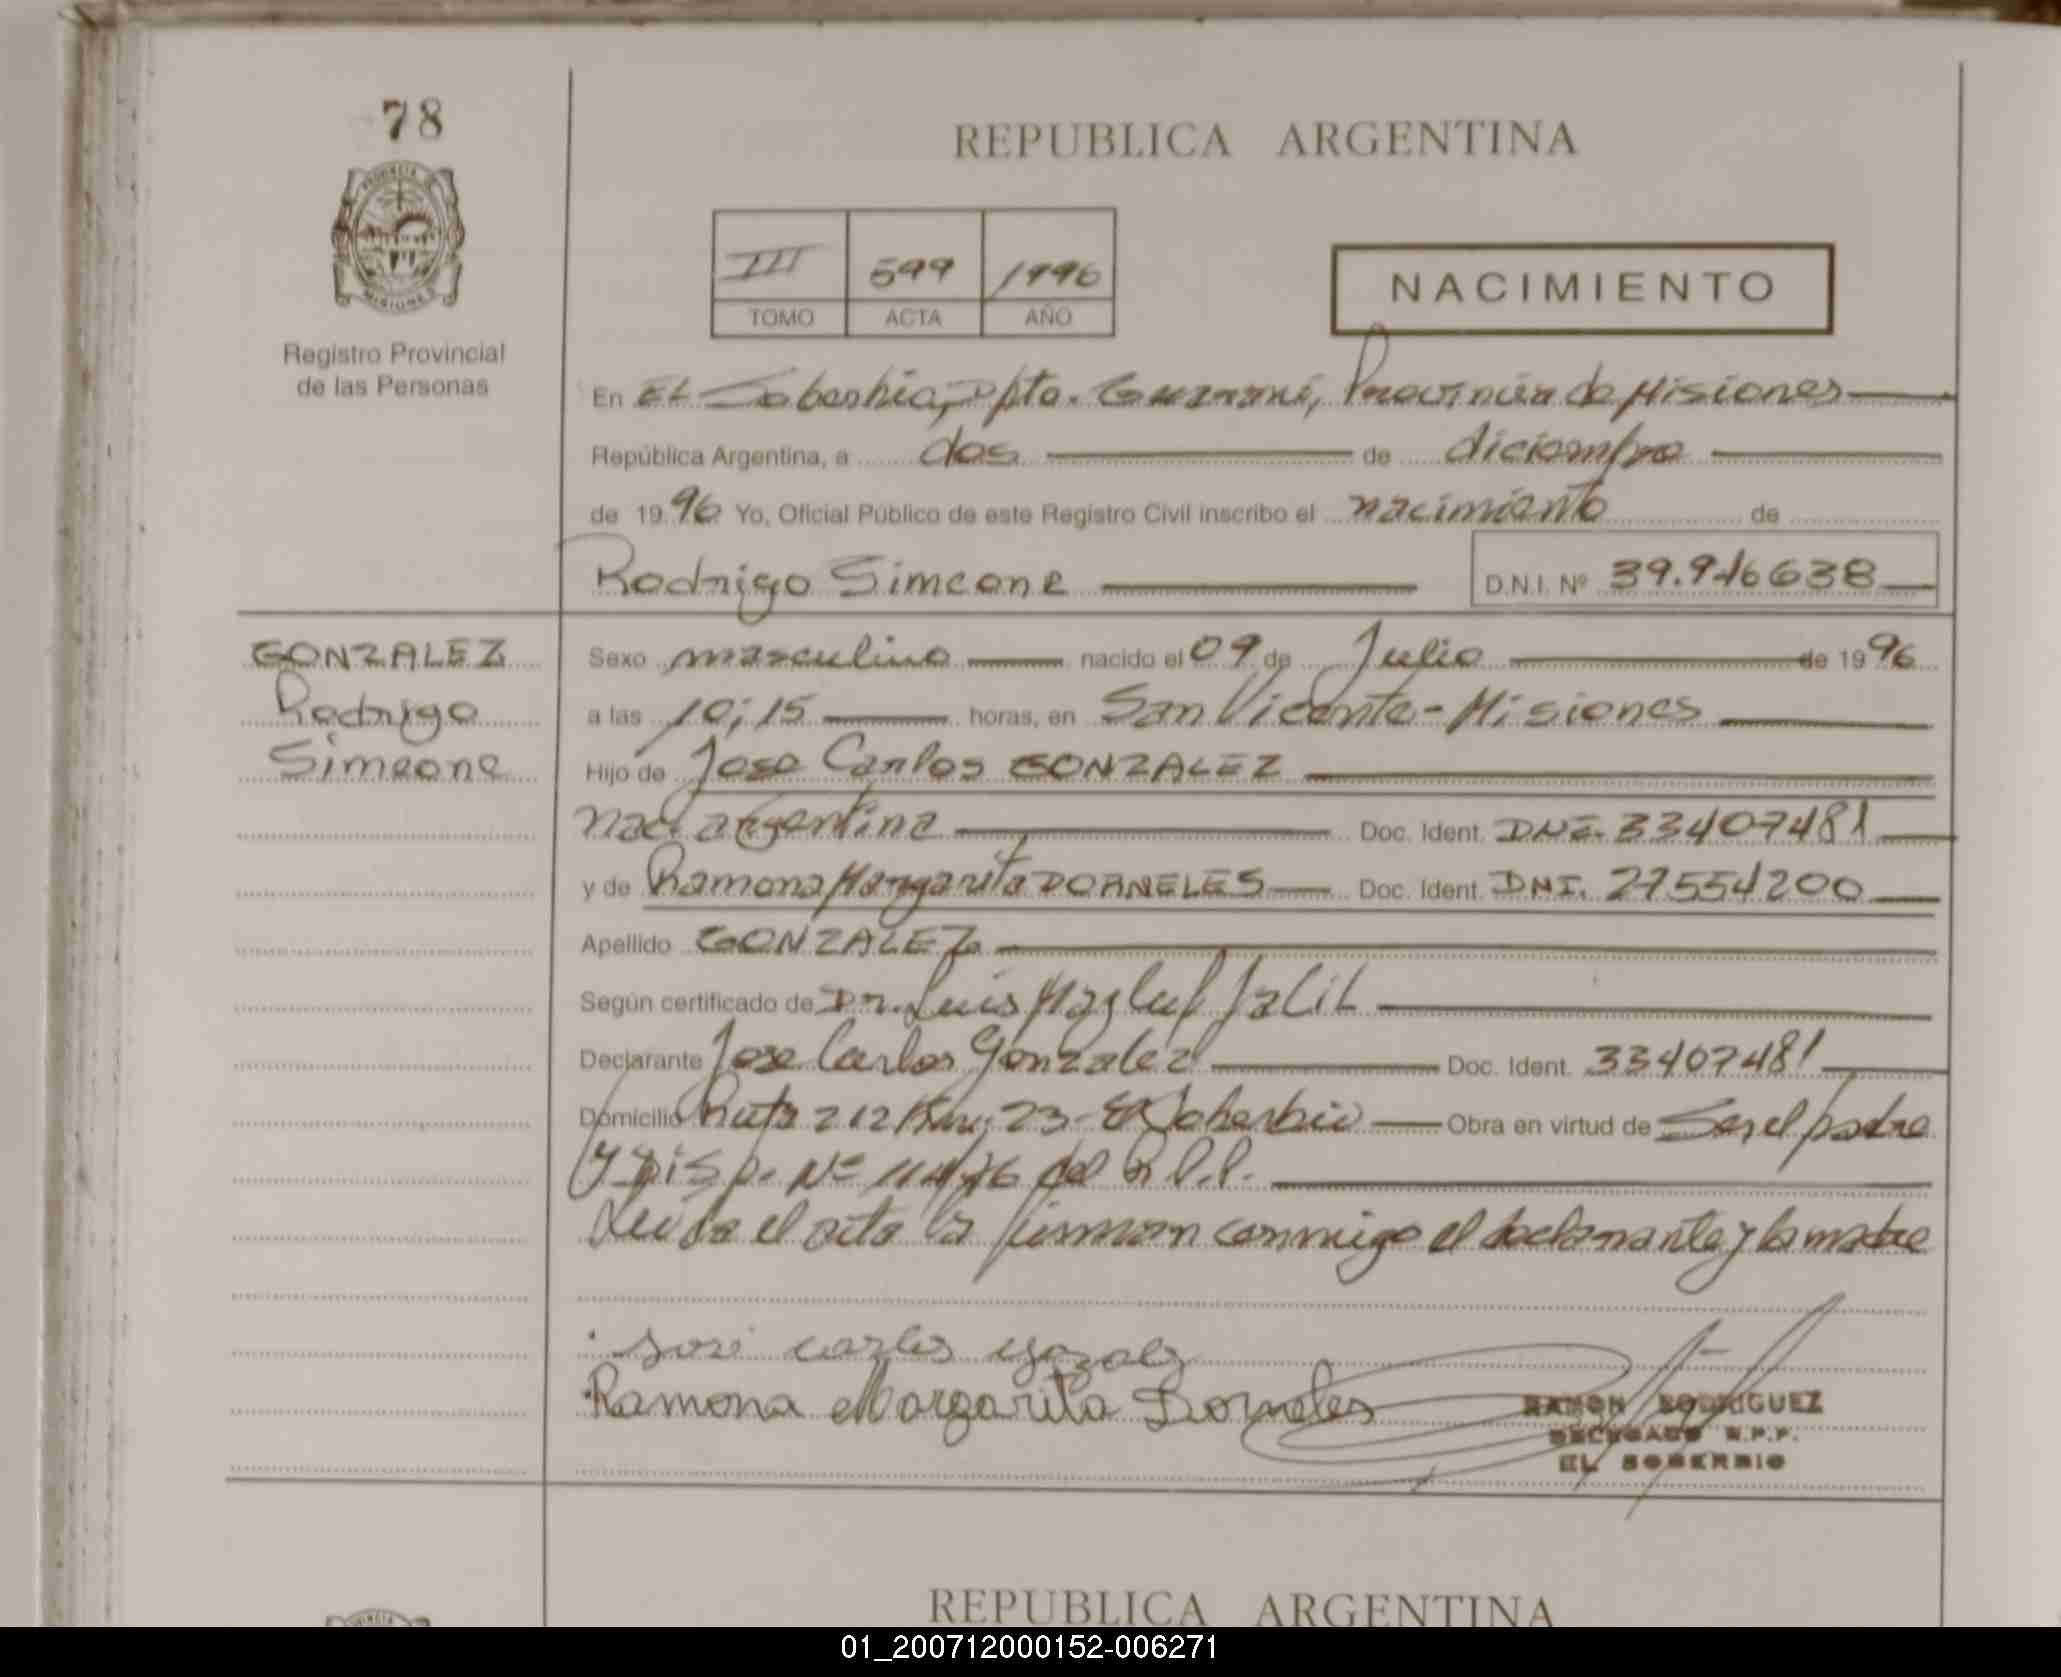 78
REPUBLICA ARGENTINA
III 599 1996
TOMO ACTA AÑO
NACIMIENTO
PROVINCIA DE
MISIONES
Registro Provincial
de las Personas
En EL Soberbio, Dpto. Guaraní, Provincia de Misiones
República Argentina, a dos de diciembre
de 1996 Yo, Oficial Público de este Registro Civil inscribo el nacimiento de
Rodrigo Simeone D.N.I. Nº 39.946638
GONZALEZ
Rodrigo
Simeone
Sexo masculino nacido el 09 de Julio de 1996
a las 10;15 horas, en San Vicente - Misiones
Hijo de Jose Carlos GONZALEZ
nac. argentina Doc. Ident. DNI. 33407481
y de Ramona Margarita DORNELES Doc. Ident. DNI. 27554200
Apellido GONZALEZ
Según certificado de Dr. Luis Jalil
Declarante Jose Carlos Gonzalez Doc. Ident. 33407481
Domicilio Ruta 212 Km. 23 - El Soberbio Obra en virtud de Ser el padre
y Disp. Nº del R.P.P.
Leida el acta la firman conmigo el declarante y la madre
José carlos
Ramona Margarita Dorneles
RAMON RODRIGUEZ
DELEGADO R.P.P.
EL SOBERBIO
REPUBLICA ARGENTINA
01_200712000152-006271